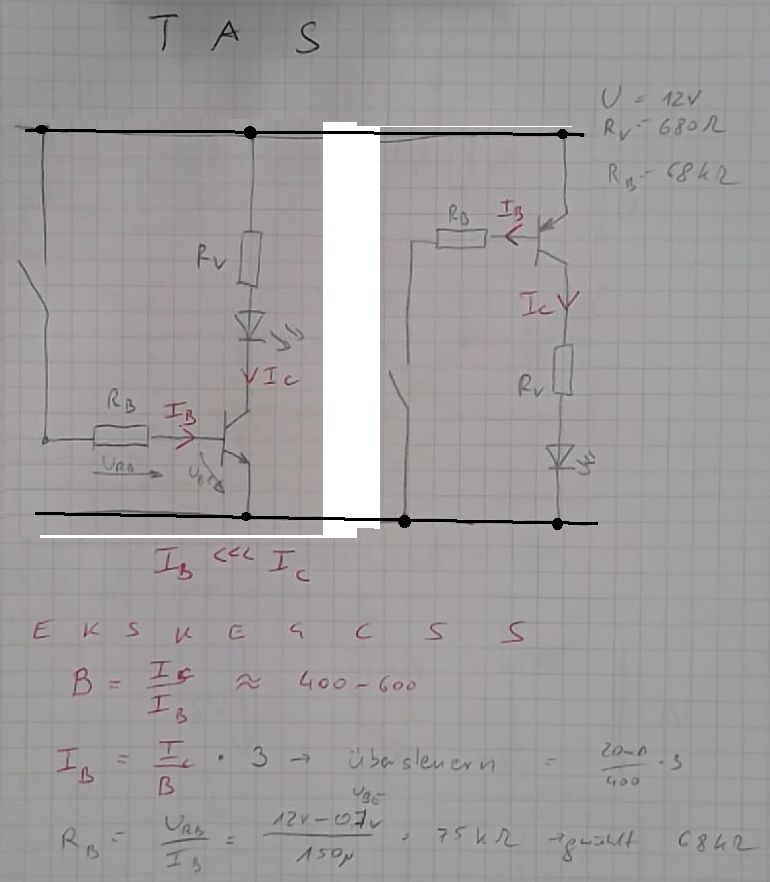 T A S
U = 12V
R_V = 680Ω
R_B = 68kΩ
R_B I_B
R_V
I_C
R_V
I_C
R_B I_B
U_RB
I_B <<< I_C
E K S K E G C S S
B = I_C / I_B ≈ 400 - 600
I_B = I_C / B · 3 → übersteuern = 20mA / 400 · 3
U_BE
R_B = U_RB / I_B = 12V - 0,7V / 150µ = 75kΩ → gewählt 68kΩ